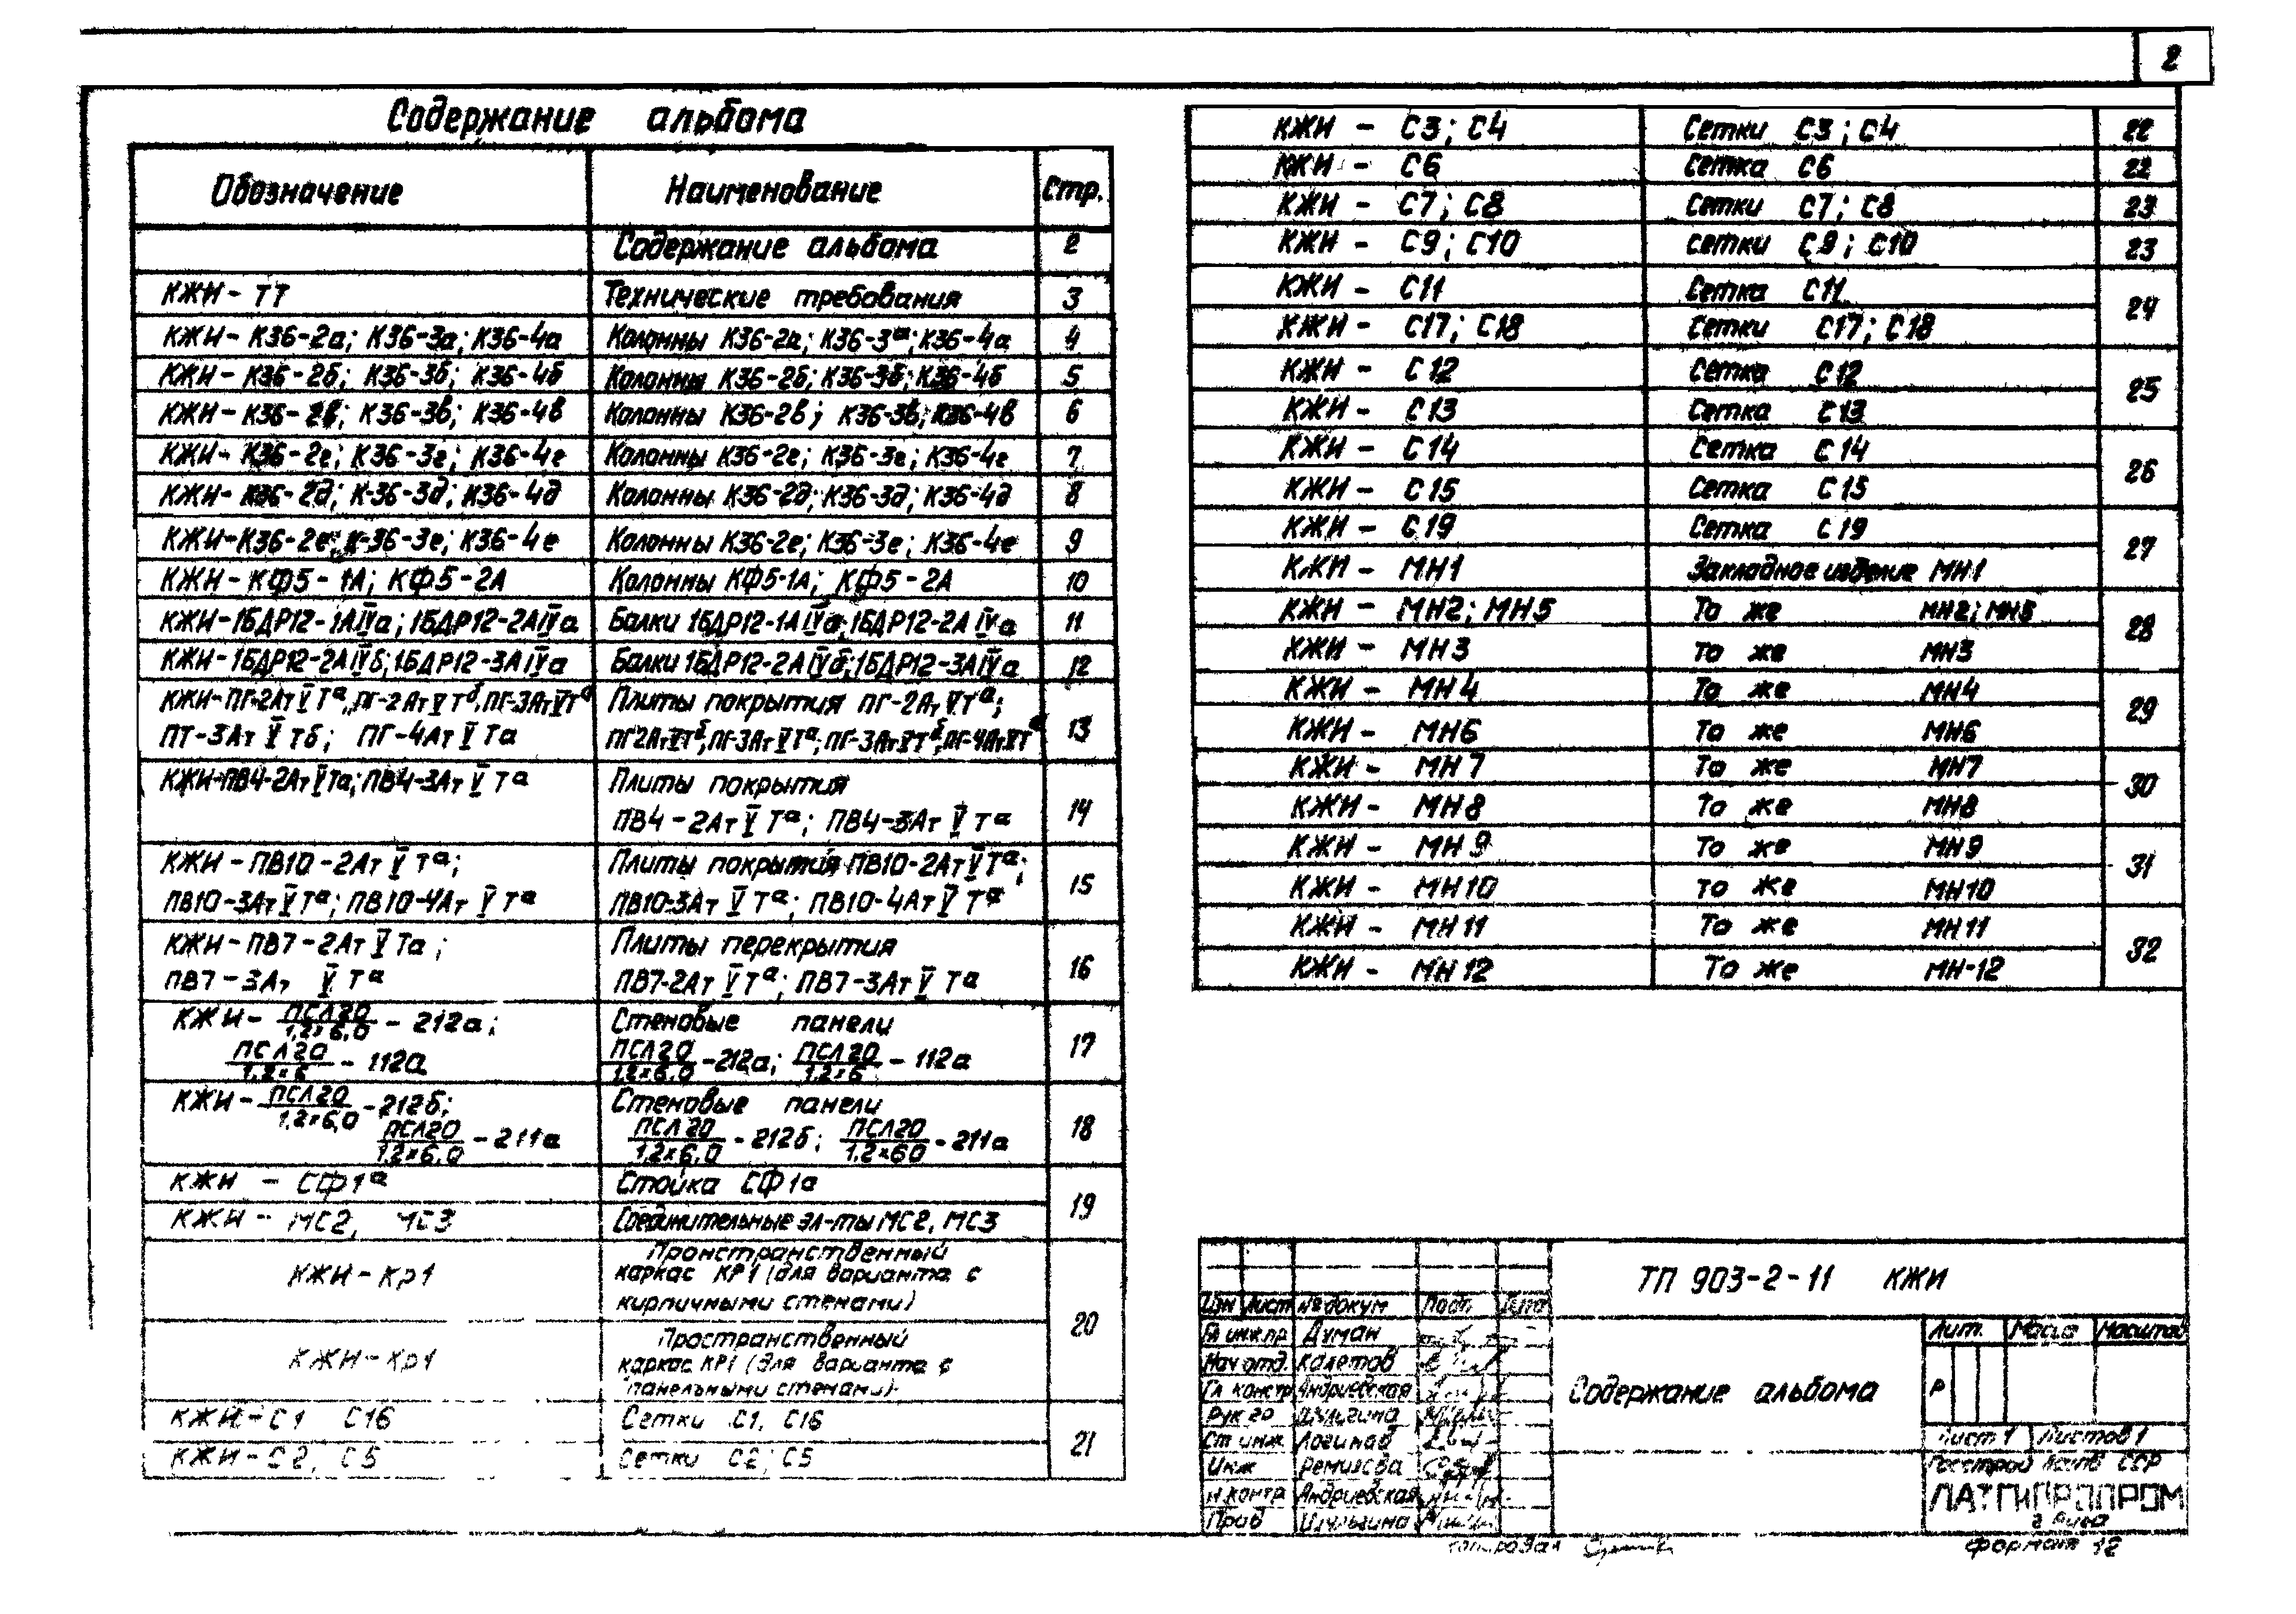 2
Содержание альбома
Обозначение Наименование Стр.
Содержание альбома 2
КЖИ-ТТ Технические требования 3
КЖИ-К36-2а; К36-3а; К36-4а Колонны К36-2а; К36-3а; К36-4а 4
КЖИ-К36-2б; К36-3б; К36-4б Колонны К36-2б; К36-3б; К36-4б 5
КЖИ-К36-2в; К36-3в; К36-4в Колонны К36-2в; К36-3в; К36-4в 6
КЖИ-К36-2г; К36-3г; К36-4г Колонны К36-2г; К36-3г; К36-4г 7
КЖИ-К36-2д; К-36-3д; К36-4д Колонны К36-2д; К36-3д; К36-4д 8
КЖИ-К36-2е; К-36-3е; К36-4е Колонны К36-2е; К36-3е; К36-4е 9
КЖИ-КФ5-1А; КФ5-2А Колонны КФ5-1А; КФ5-2А 10
КЖИ-1БДР12-1АIVа; 1БДР12-2АIVа Балки 1БДР12-1АIVа; 1БДР12-2АIVа 11
КЖИ-1БДР12-2АIVб; 1БДР12-3АIVа Балки 1БДР12-2АIVб; 1БДР12-3АIVа 12
КЖИ-ПГ-2АтVТа, ПГ-2АтVТб, ПГ-3АтVТа Плиты покрытия ПГ-2АтVТа;
ПТ-3АтVТб; ПГ-4АтVТа ПГ2АтVТб, ПГ-3АтVТа; ПГ-3АтVТб, ПГ-4АтVТа 13
КЖИ-ПВ4-2АтVТа; ПВ4-3АтVТа Плиты покрытия
ПВ4-2АтVТа; ПВ4-3АтVТа 14
КЖИ-ПВ10-2АтVТа; Плиты покрытия ПВ10-2АтVТа;
ПВ10-3АтVТа; ПВ10-4АтVТа ПВ10-3АтVТа; ПВ10-4АтVТа 15
КЖИ-ПВ7-2АтVТа; Плиты перекрытия
ПВ7-3АтVТа ПВ7-2АтVТа; ПВ7-3АтVТа 16
КЖИ-ПСЛ20/1,2×6,0-212а; Стеновые панели
ПСЛ20/1,2×6-112а ПСЛ20/1,2×6,0-212а; ПСЛ20/1,2×6-112а 17
КЖИ-ПСЛ20/1,2×6,0-212б; Стеновые панели
ПСЛ20/1,2×6,0-211а ПСЛ20/1,2×6,0-212б; ПСЛ20/1,2×60-211а 18
КЖИ - СФ1а Стойка СФ1а 19
КЖИ - МС2, МС3 Соединительные эл-ты МС2, МС3
КЖИ-Кр1 Пронстранственный
каркас КР1 (для варианта с
кирпичными стенами) 20
КЖИ-Кр1 Пространственный
каркас КР1 (для варианта с
панельными стенами)
КЖИ-С1 С16 Сетки С1, С16 21
КЖИ-С2, С5 Сетки С2; С5
КЖИ - С3; С4 Сетки С3; С4 22
КЖИ - С6 Сетка С6 22
КЖИ - С7; С8 Сетки С7; С8 23
КЖИ - С9; С10 Сетки С9; С10 23
КЖИ - С11 Сетка С11 24
КЖИ - С17; С18 Сетки С17; С18
КЖИ - С12 Сетка С12 25
КЖИ - С13 Сетка С13
КЖИ - С14 Сетка С14 26
КЖИ - С15 Сетка С15
КЖИ - С19 Сетка С19 27
КЖИ - МН1 Закладное изделие МН1
КЖИ - МН2; МН5 То же МН2; МН5 28
КЖИ - МН3 То же МН3
КЖИ - МН4 То же МН4 29
КЖИ - МН6 То же МН6
КЖИ - МН7 То же МН7 30
КЖИ - МН8 То же МН8
КЖИ - МН9 То же МН9 31
КЖИ - МН10 То же МН10
КЖИ - МН11 То же МН11 32
КЖИ - МН12 То же МН-12
ТП 903-2-11 КЖИ
Изм Лист № докум Подп. Дата
Гл инж.пр Думан
Нач отд. Калетов
Гл констр Андриевская
Рук гр Шульгина
Ст инж Логинов
Инж Ремизова
Н.контр Андриевская
Пров Шульгина
Содержание альбома
Лит. Масса Масштаб
Р
Лист 1 Листов 1
Госстрой Латв ССР
ЛАТГИПРОПРОМ
г Рига
Копировал
Формат 12